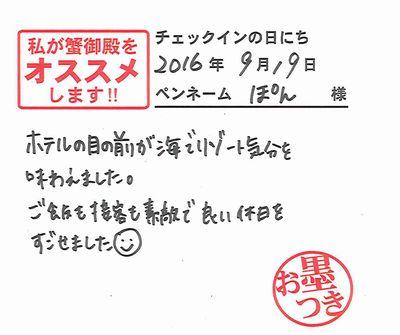 私が蟹御殿を
オススメ
します!!
チェックインの日にち
2016年 9月19日
ペンネーム ぽん 様
ホテルの目の前が海でリゾート気分を
味わえました。
ご飯も接客も素敵で良い休日を
すごせました
お墨つき